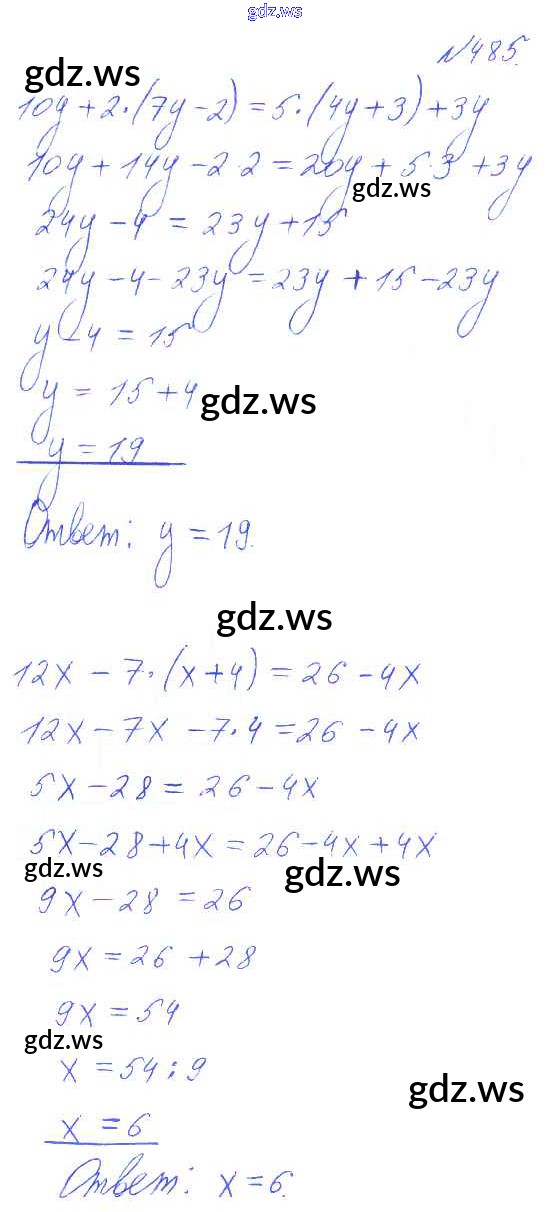 gdz.ws
№485.
gdz.ws
10y + 2·(7y − 2) = 5·(4y + 3) + 3y
10y + 14y − 2·2 = 20y + 5·3 + 3y
gdz.ws
24y − 4 = 23y + 15
24y − 4 − 23y = 23y + 15 − 23y
y − 4 = 15
y = 15 + 4
gdz.ws
y = 19
Ответ: y = 19.
gdz.ws
12x − 7·(x + 4) = 26 − 4x
12x − 7x − 7·4 = 26 − 4x
5x − 28 = 26 − 4x
5x − 28 + 4x = 26 − 4x + 4x
gdz.ws
gdz.ws
9x − 28 = 26
9x = 26 + 28
9x = 54
gdz.ws
x = 54 : 9
gdz.ws
x = 6
Ответ: x = 6.